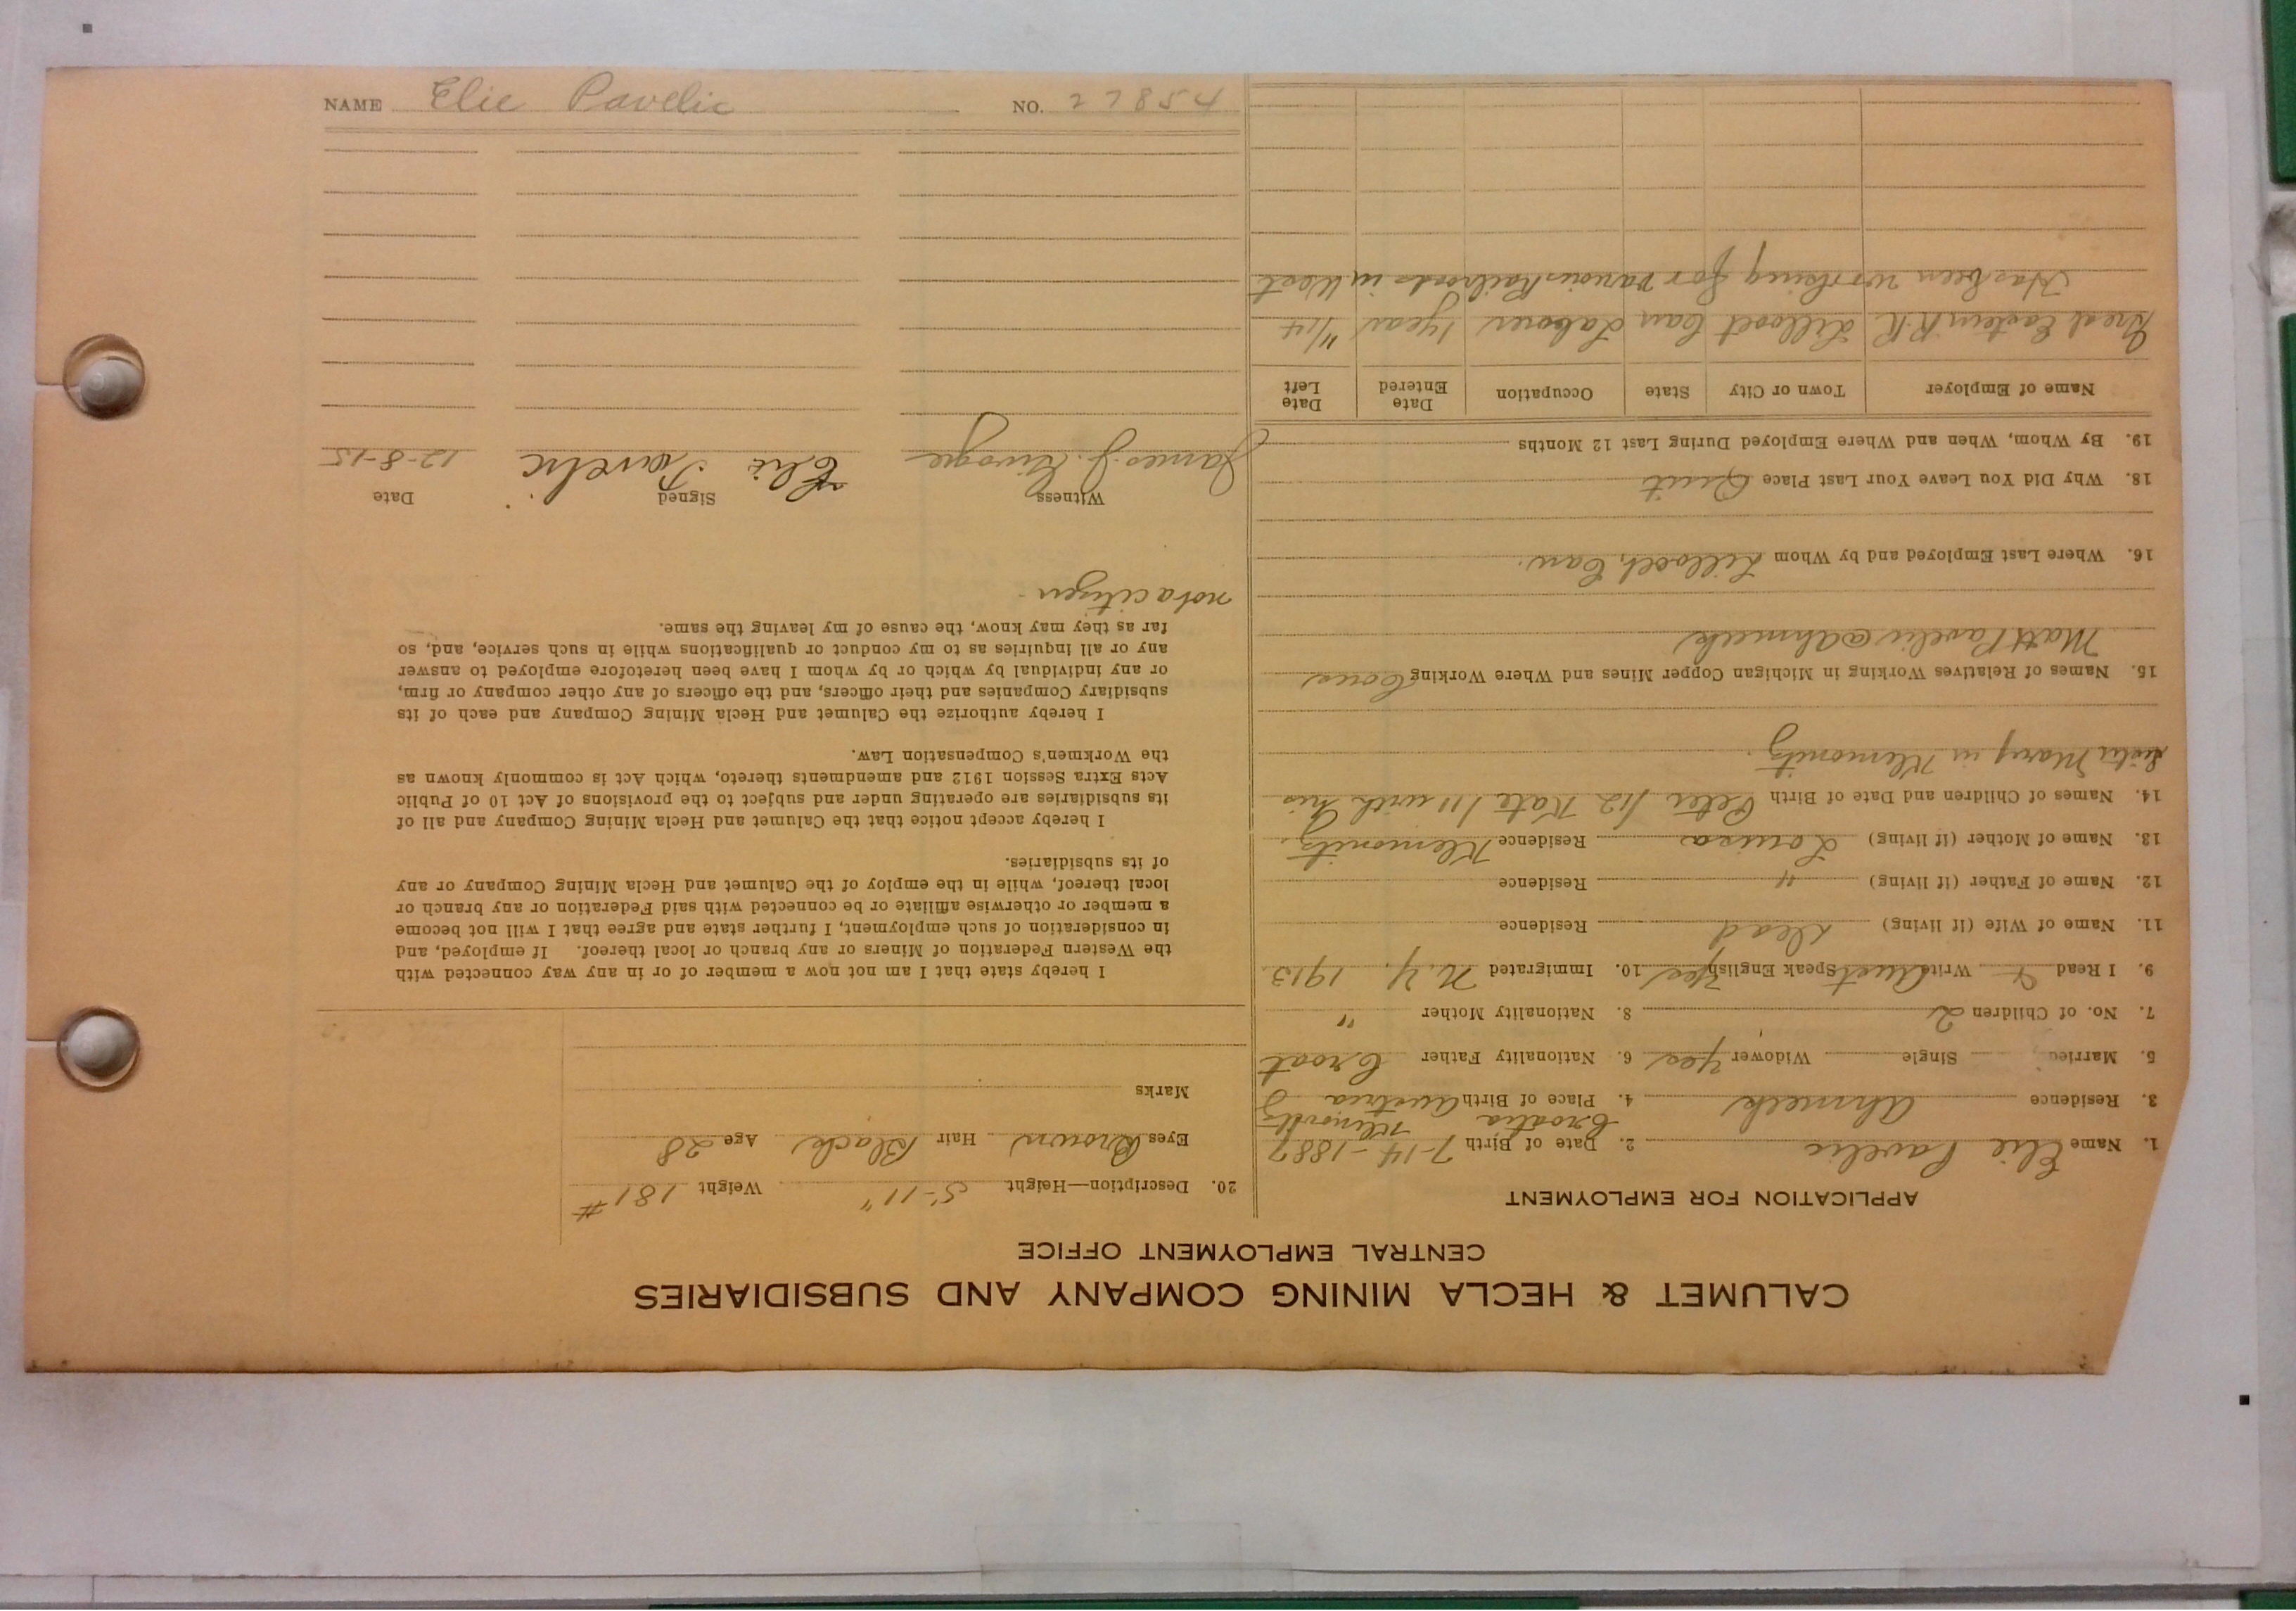 CALUMET & HECLA MINING COMPANY AND SUBSIDIARIES
CENTRAL EMPLOYMENT OFFICE
APPLICATION FOR EMPLOYMENT
1. Name Elie Pavelic 2. Date of Birth 7-14-1887
3. Residence Ahmeek 4. Place of Birth Austria
Croatia
5. Married Single Widower Yes 6. Nationality Father Croat
7. No. of Children 2 8. Nationality Mother "
9. I Read & Write Aust Speak English Yes 10. Immigrated N.Y. 1913
11. Name of Wife (if living) Dead Residence
12. Name of Father (if living) " Residence
13. Name of Mother (if living) Louisa Residence Klemonitz.
14. Names of Children and Date of Birth Peter /12 Kate /11 with his
sister Mary in Klemonitz.
15. Names of Relatives Working in Michigan Copper Mines and Where Working Cous
Matt Pavelic @ Ahmeek
16. Where Last Employed and by Whom Lillooet, Can.
18. Why Did You Leave Your Last Place Quit
19. By Whom, When and Where Employed During Last 12 Months
Name of Employer Town or City State Occupation Date Entered Date Left
Great Eastern R.R. Lillooet Can Laborer 1 year 11/14
Has been working for various Railroads in West
20. Description—Height 5-11" Weight 181 #
Eyes Brown Hair Black Age 28
Marks
I hereby state that I am not now a member of or in any way connected with
the Western Federation of Miners or any branch or local thereof. If employed, and
in consideration of such employment, I further state and agree that I will not become
a member or otherwise affiliate or be connected with said Federation or any branch or
local thereof, while in the employ of the Calumet and Hecla Mining Company or any
of its subsidiaries.
I hereby accept notice that the Calumet and Hecla Mining Company and all of
its subsidiaries are operating under and subject to the provisions of Act 10 of Public
Acts Extra Session 1912 and amendments thereto, which Act is commonly known as
the Workmen's Compensation Law.
I hereby authorize the Calumet and Hecla Mining Company and each of its
subsidiary Companies and their officers, and the officers of any other company or firm,
or any individual by which or by whom I have been heretofore employed to answer
any or all inquiries as to my conduct or qualifications while in such service, and, so
far as they may know, the cause of my leaving the same.
not a citizen
Witness Signed Date
James J. Elie Pavelic 12-8-15
NAME Elie Pavelic NO. 27854